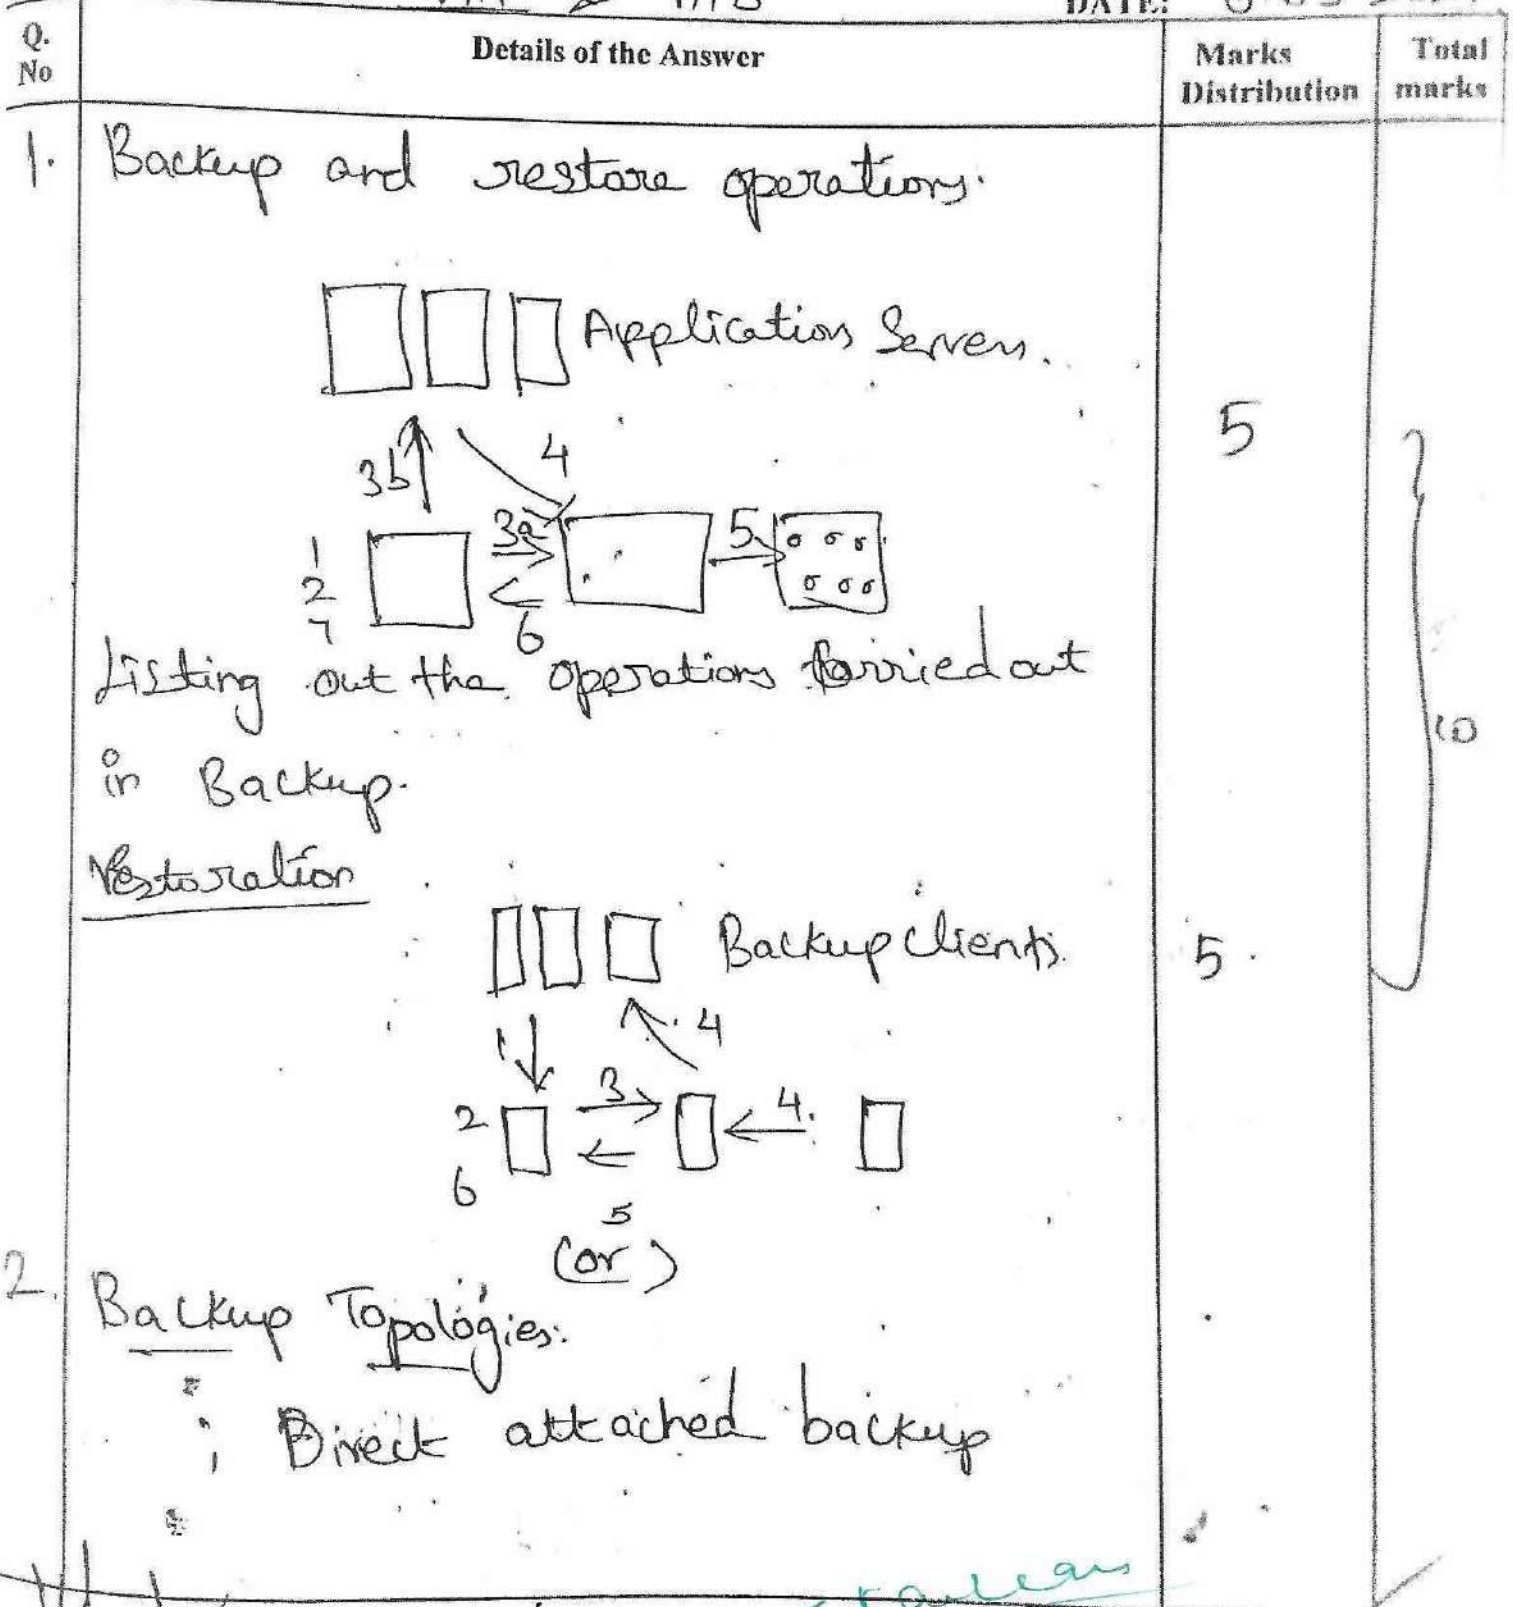 DATE:
Q. No
Details of the Answer
Marks Distribution
Total marks
1. Backup and restore operations.
Application Servers.
3b
4
3a
5
1
2
7
6
5
Listing out the operations Carried out
in Backup.
10
Restoration
Backup clients.
5.
1
4
3
4.
2
6
5
(or)
2. Backup Topologies:
i Direct attached backup